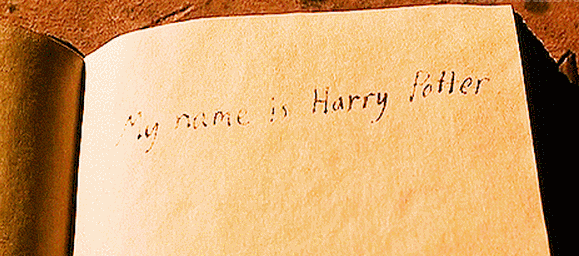 My name is Harry Potter